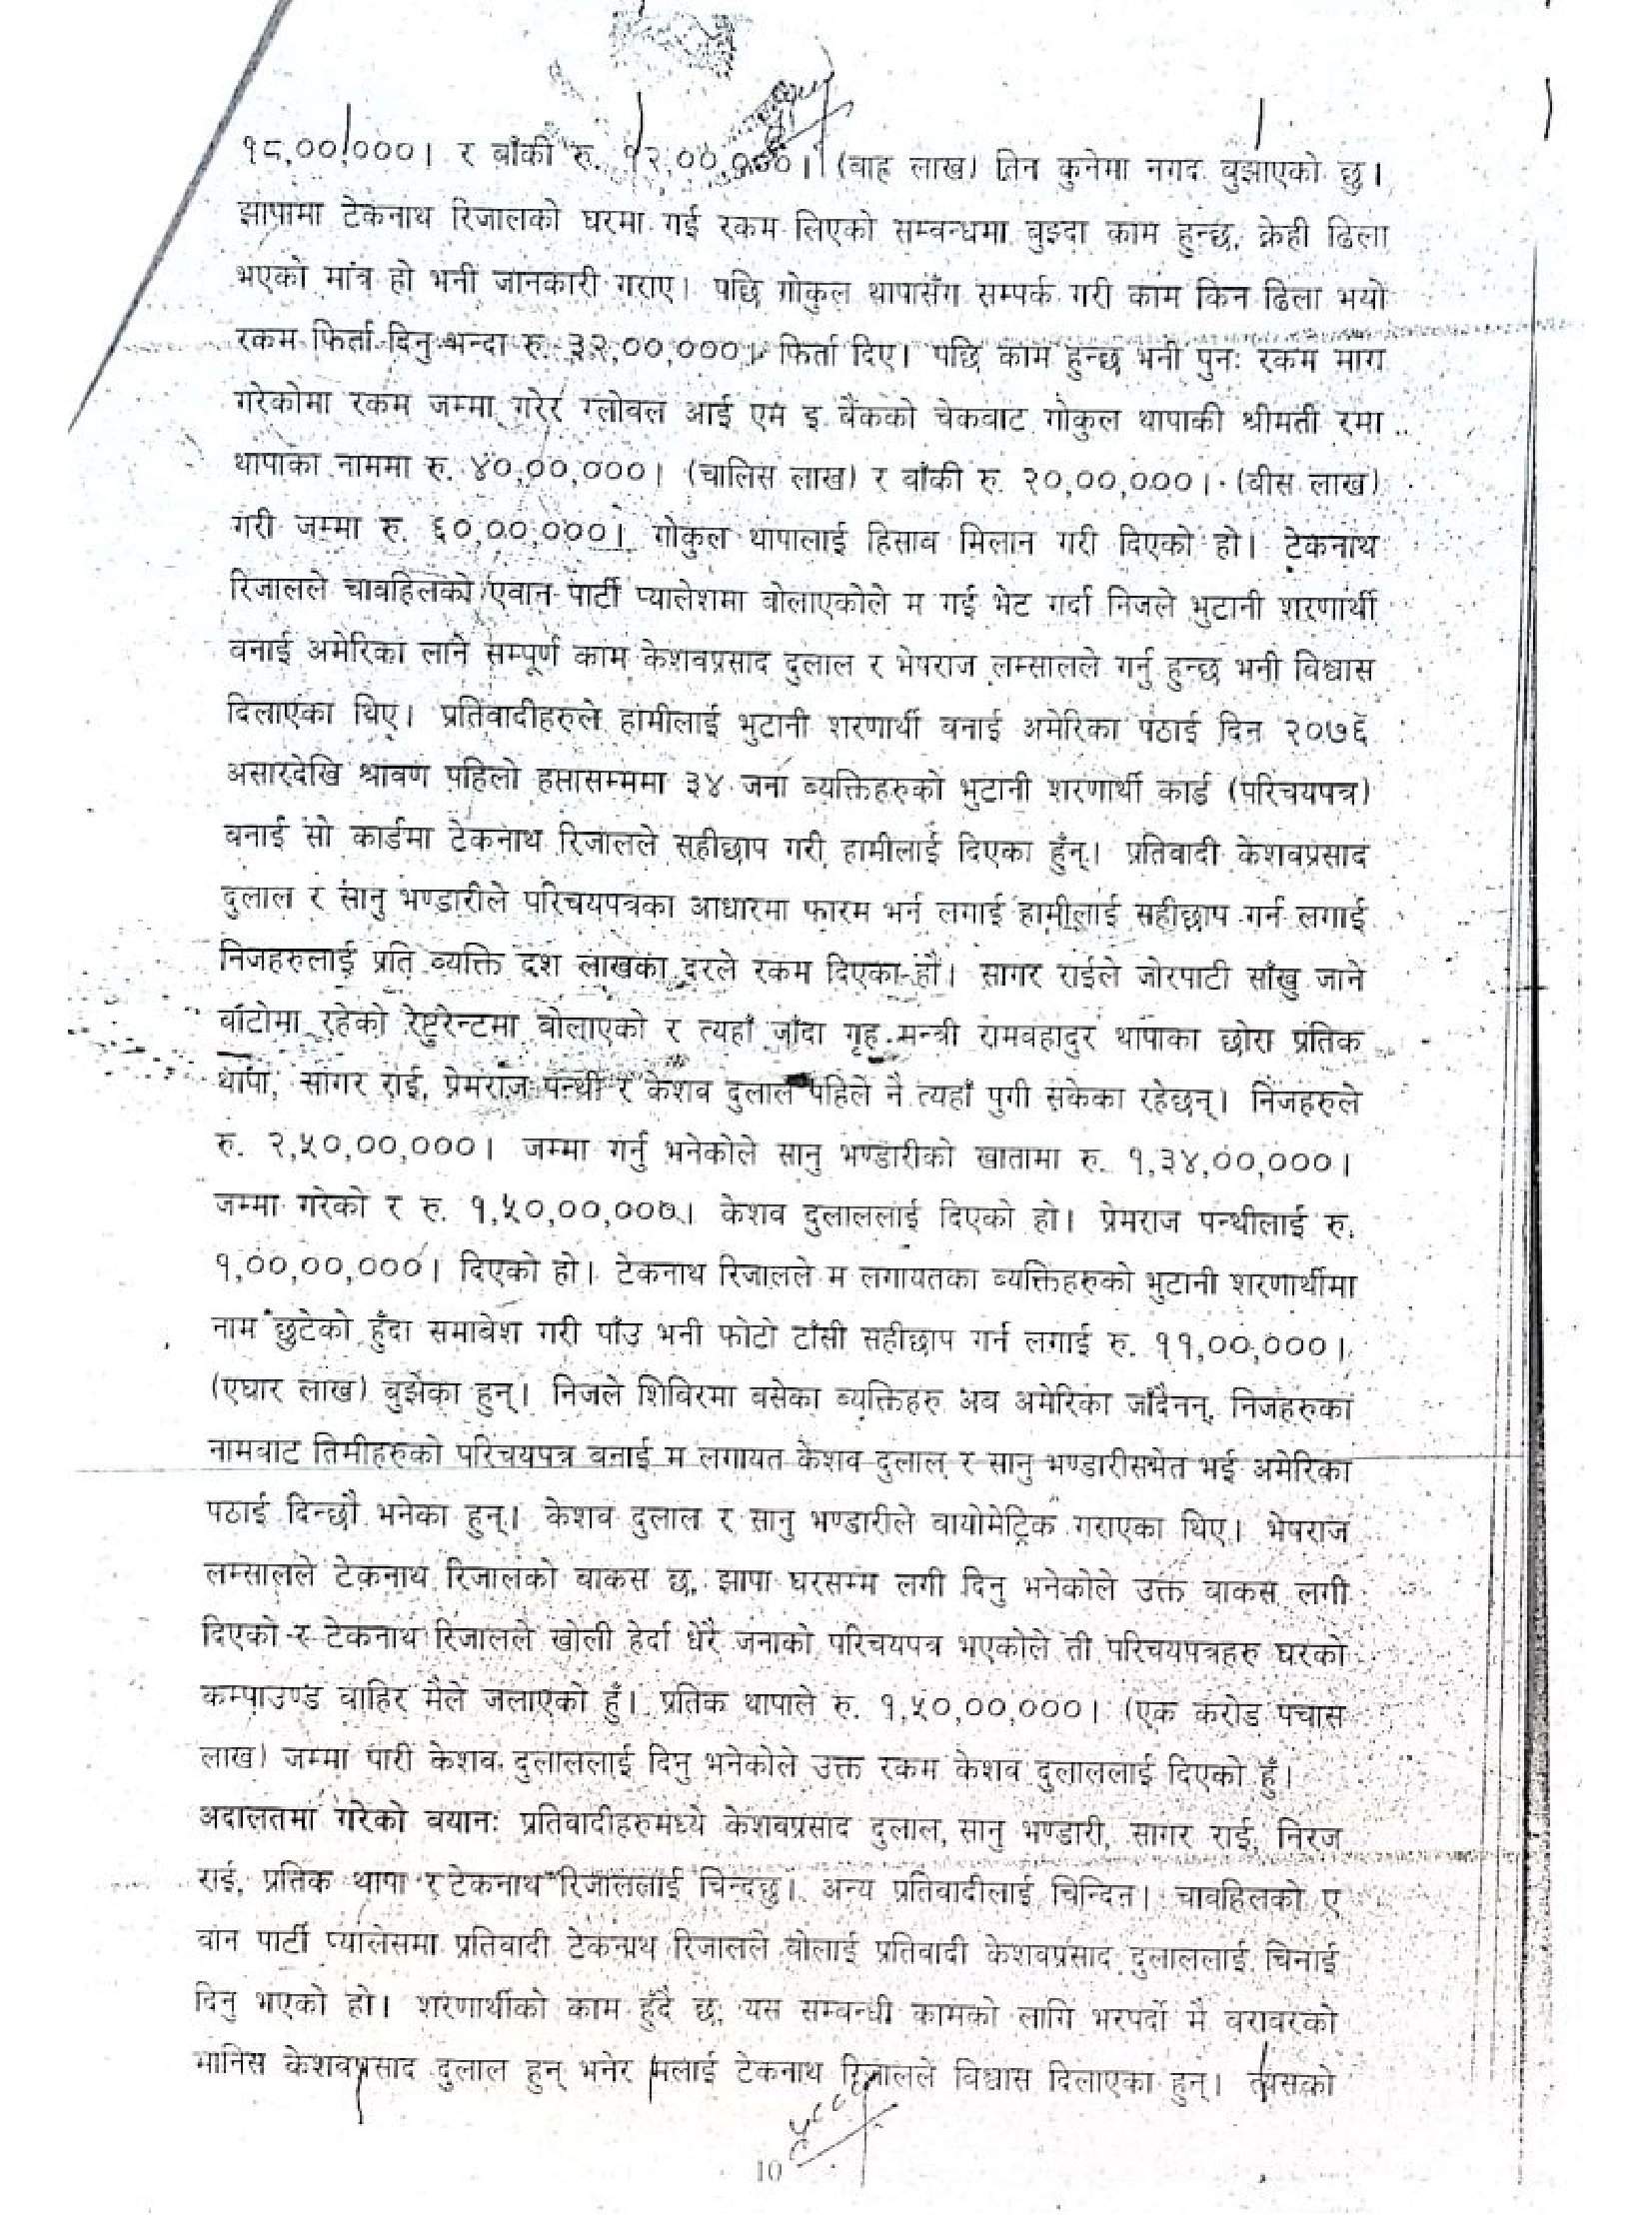 १८,००,०००। र बाँकी रु. १२,००,०००। (बाह लाख) तिन कुनेमा नगद बुझाएको छु।
झापामा टेकनाथ रिजालको घरमा गई रकम लिएको सम्वन्धमा बुझ्दा काम हुन्छ, केही ढिला
भएको मात्र हो भनी जानकारी गराए। पछि गोकुल थापासँग सम्पर्क गरी काम किन ढिला भयो
रकम फिर्ता दिनु भन्दा रु. ३२,००,०००। फिर्ता दिए। पछि काम हुन्छ भनी पुनः रकम माग
गरेकोमा रकम जम्मा गरेर ग्लोवल आई एम इ बैंकको चेकवाट गोकुल थापाकी श्रीमती रमा
थापाका नाममा रु. ४०,००,०००। (चालिस लाख) र बाँकी रु. २०,००,०००। (बीस लाख)
गरी जम्मा रु. ६०,००,०००। गोकुल थापालाई हिसाव मिलान गरी दिएको हो। टेकनाथ
रिजालले चावहिलको एवान पार्टी प्यालेशमा बोलाएकोले म गई भेट गर्दा निजले भुटानी शरणार्थी
बनाई अमेरिका लाने सम्पूर्ण काम केशवप्रसाद दुलाल र भेषराज लम्सालले गर्नु हुन्छ भनी विश्वास
दिलाएका थिए। प्रतिवादीहरुले हामीलाई भुटानी शरणार्थी बनाई अमेरिका पठाई दिन २०७६
असारदेखि श्रावण पहिलो हप्तासम्ममा ३४ जना व्यक्तिहरुको भुटानी शरणार्थी कार्ड (परिचयपत्र)
बनाई सो कार्डमा टेकनाथ रिजालले सहीछाप गरी हामीलाई दिएका हुँन्। प्रतिवादी केशवप्रसाद
दुलाल र सानु भण्डारीले परिचयपत्रका आधारमा फारम भर्न लगाई हामीलाई सहीछाप गर्न लगाई
निजहरुलाई प्रति व्यक्ति दश लाखका दरले रकम दिएका हौं। सागर राईले जोरपाटी साँखु जाने
बाटोमा रहेको रेष्टुरेन्टमा बोलाएको र त्यहाँ जाँदा गृह मन्त्री रामवहादुर थापाका छोरा प्रतिक
थापा, सागर राई, प्रेमराज पन्थी र केशव दुलाल पहिले नै त्यहाँ पुगी सकेका रहेछन्। निजहरुले
रु. २,५०,००,०००। जम्मा गर्नु भनेकोले सानु भण्डारीको खातामा रु. १,३४,००,०००।
जम्मा गरेको र रु. १,५०,००,०००। केशव दुलाललाई दिएको हो। प्रेमराज पन्थीलाई रु.
१,००,००,०००। दिएको हो। टेकनाथ रिजालले म लगायतका व्यक्तिहरुको भुटानी शरणार्थीमा
नाम छुटेको हुँदा समावेश गरी पाँउ भनी फोटो टाँसी सहीछाप गर्न लगाई रु. ११,००,०००।
(एघार लाख) बुझेका हुन्। निजले शिविरमा बसेका व्यक्तिहरु अव अमेरिका जाँदैनन्, निजहरुका
नामवाट तिमीहरुको परिचयपत्र बनाई म लगायत केशव दुलाल र सानु भण्डारीसमेत भई अमेरिका
पठाई दिन्छौ भनेका हुन्। केशव दुलाल र सानु भण्डारीले वायोमेट्रिक गराएका थिए। भेषराज
लम्सालले टेकनाथ रिजालको वाकस छ, झापा घरसम्म लगी दिनु भनेकोले उक्त वाकस लगी
दिएको र टेकनाथ रिजालले खोली हेर्दा धेरै जनाको परिचयपत्र भएकोले ती परिचयपत्रहरु घरको
कम्पाउण्ड वाहिर मैले जलाएको हुँ। प्रतिक थापाले रु. १,५०,००,०००। (एक करोड पचास
लाख) जम्मा पारी केशव दुलाललाई दिनु भनेकोले उक्त रकम केशव दुलाललाई दिएको हुँ।
अदालतमा गरेको वयानः प्रतिवादीहरुमध्ये केशवप्रसाद दुलाल, सानु भण्डारी, सागर राई, निरज
राई, प्रतिक थापा र टेकनाथ रिजाललाई चिन्दछु। अन्य प्रतिवादीलाई चिन्दिन। चावहिलको ए
वान पार्टी प्यालेसमा प्रतिवादी टेकनाथ रिजालले बोलाई प्रतिवादी केशवप्रसाद दुलाललाई चिनाई
दिनु भएको हो। शरणार्थीको काम हुँदै छ, यस सम्वन्धी कामको लागि भरपर्दो मै वरावरको
मानिस केशवप्रसाद दुलाल हुन् भनेर मलाई टेकनाथ रिजालले विश्वास दिलाएका हुन्। त्यसको
10